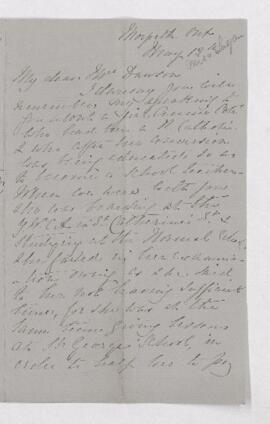 Morpeth Ont.
May 18
My dear Mrs Dawson
I daresay you will
remember my speaking to
you about a girl
who had been a R. Catholic
& who after her conversion
was being educated so as
to become a school teacher.
When we were with you
she was boarding at the
Y.W.C.A. in St Catherine St &
studying at the Normal School
she failed in her examina-
tion owing to she said
to her not having sufficient
time, for she was at the
same time giving lessons
at St George's School, in
order to help her to pay